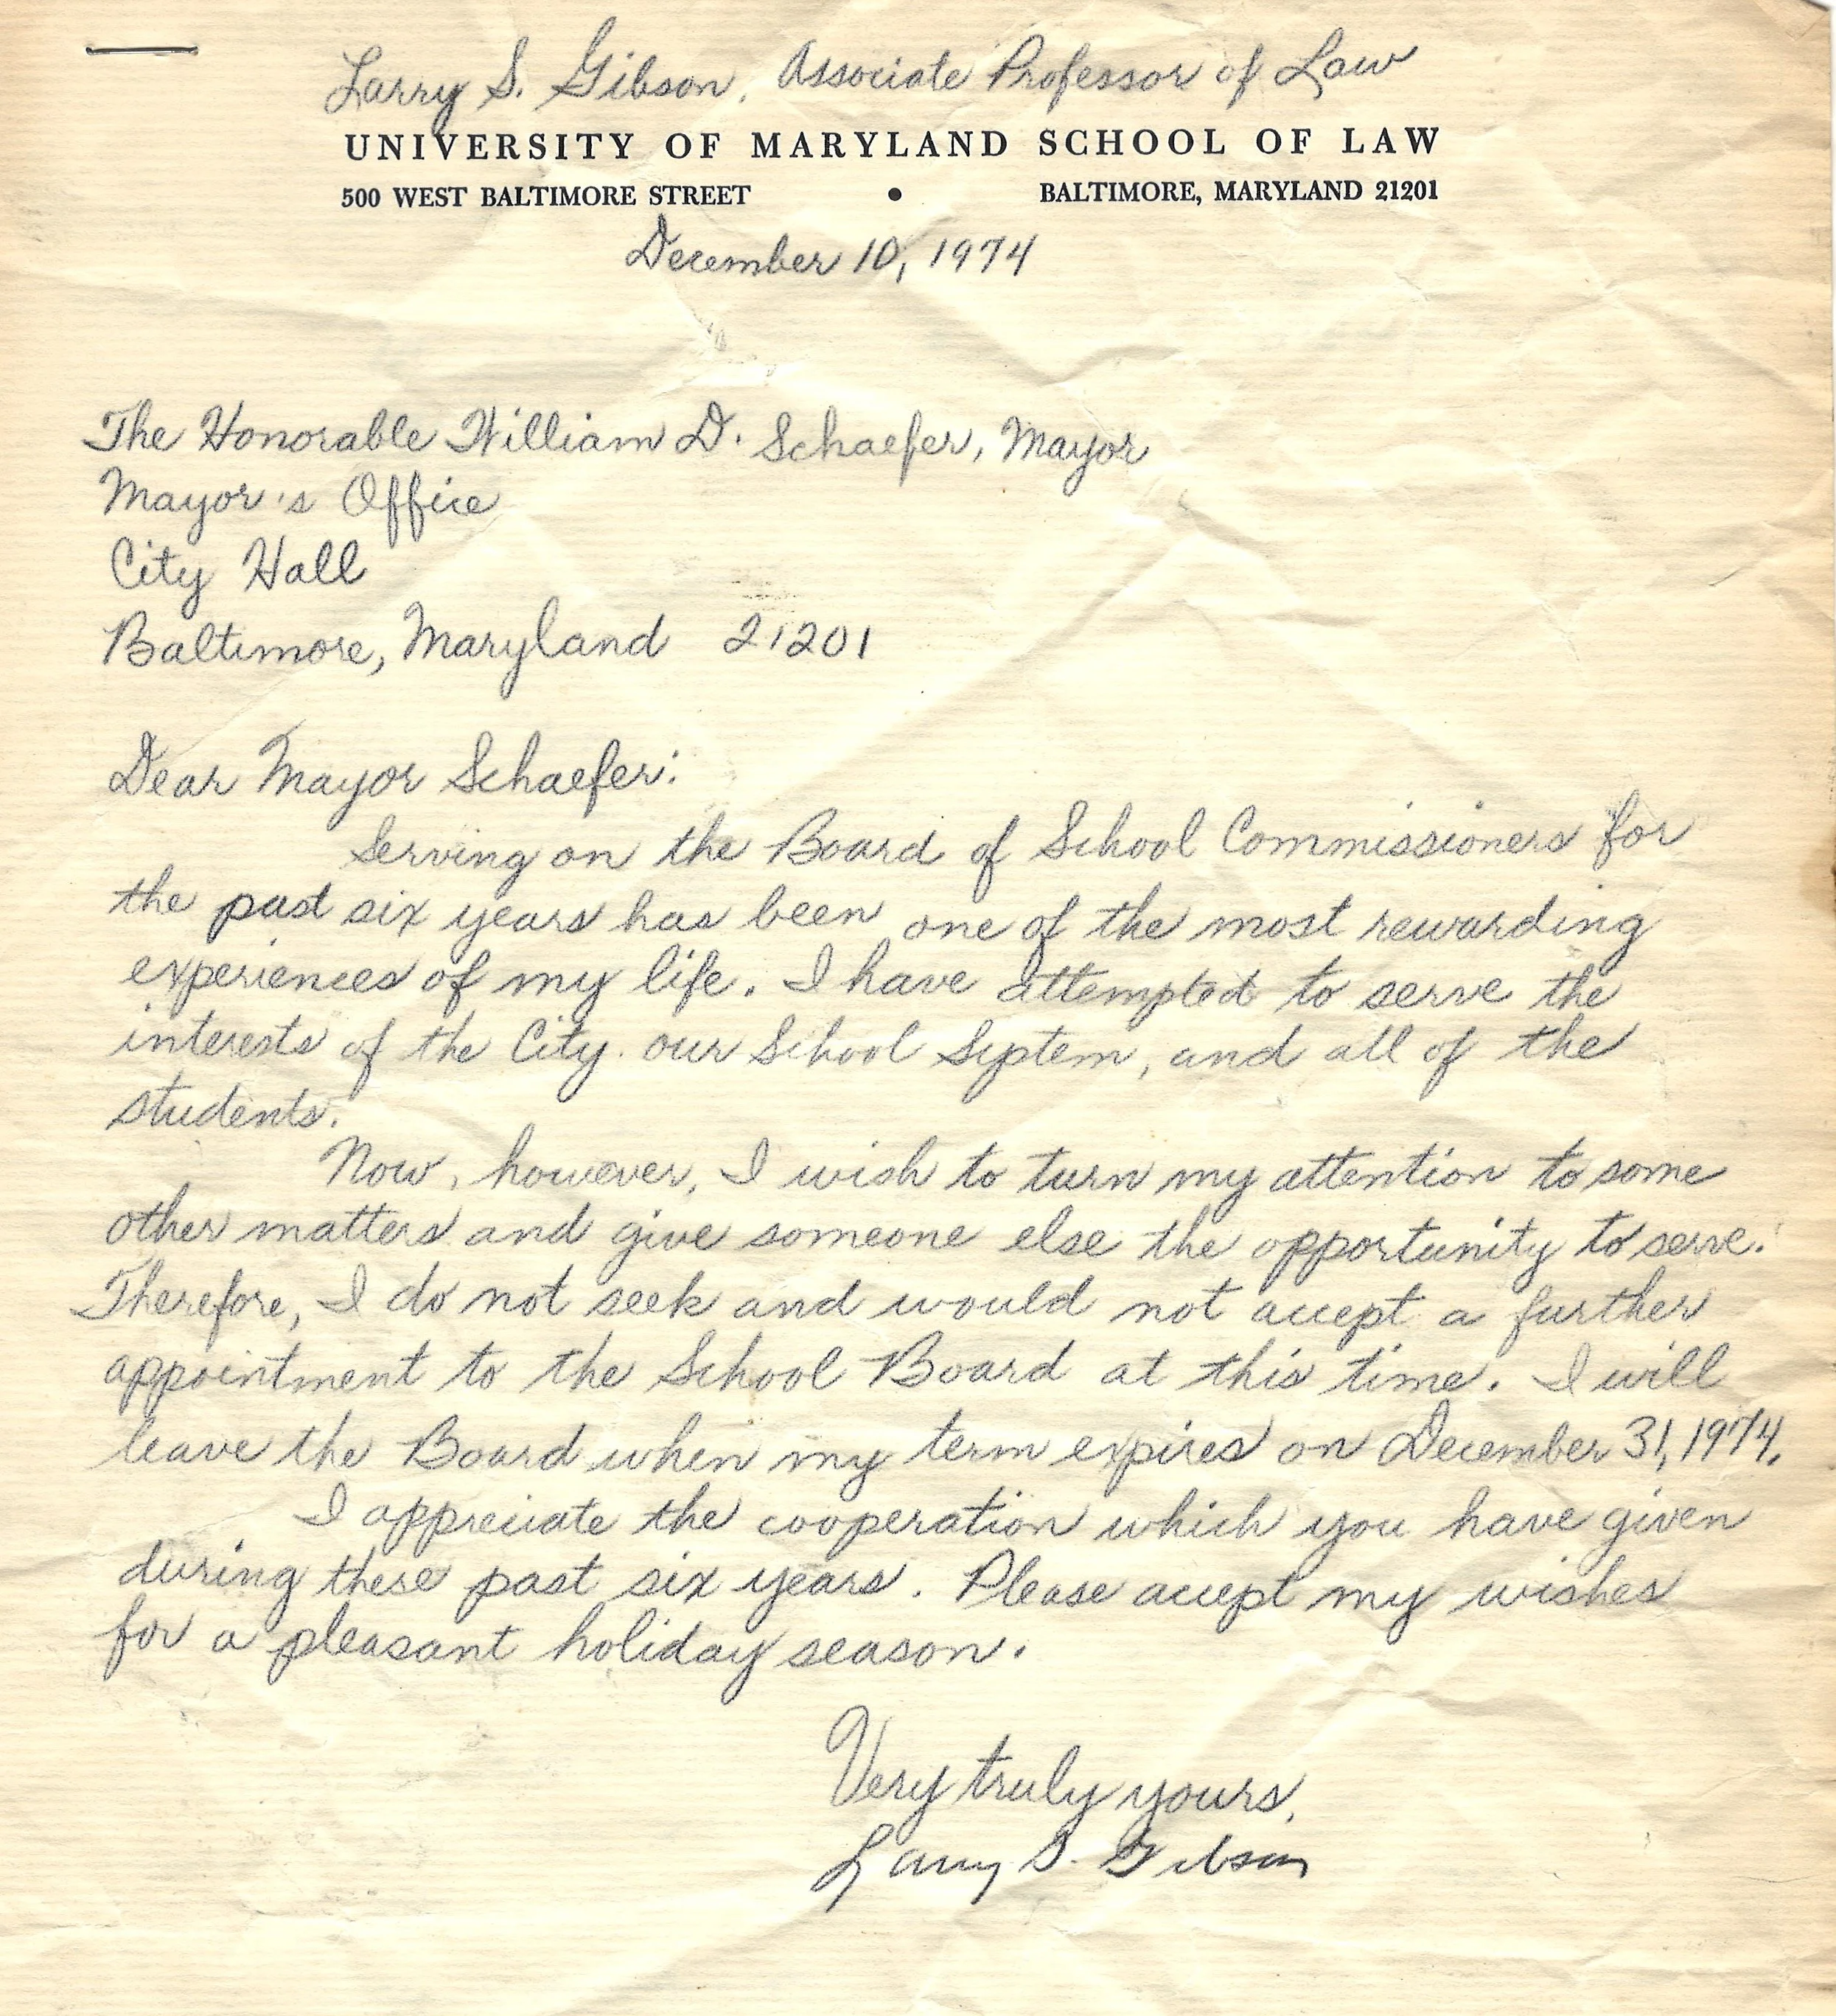 Larry S. Gibson, Associate Professor of Law
UNIVERSITY OF MARYLAND SCHOOL OF LAW
500 WEST BALTIMORE STREET • BALTIMORE, MARYLAND 21201
December 10, 1974
The Honorable William D. Schaefer, Mayor
Mayor's Office
City Hall
Baltimore, Maryland 21201
Dear Mayor Schaefer:
Serving on the Board of School Commissioners for
the past six years has been one of the most rewarding
experiences of my life. I have attempted to serve the
interests of the City, our School System, and all of the
students.
Now, however, I wish to turn my attention to some
other matters and give someone else the opportunity to serve.
Therefore, I do not seek and would not accept a further
appointment to the School Board at this time. I will
leave the Board when my term expires on December 31, 1974.
I appreciate the cooperation which you have given
during these past six years. Please accept my wishes
for a pleasant holiday season.
Very truly yours,
Larry S. Gibson